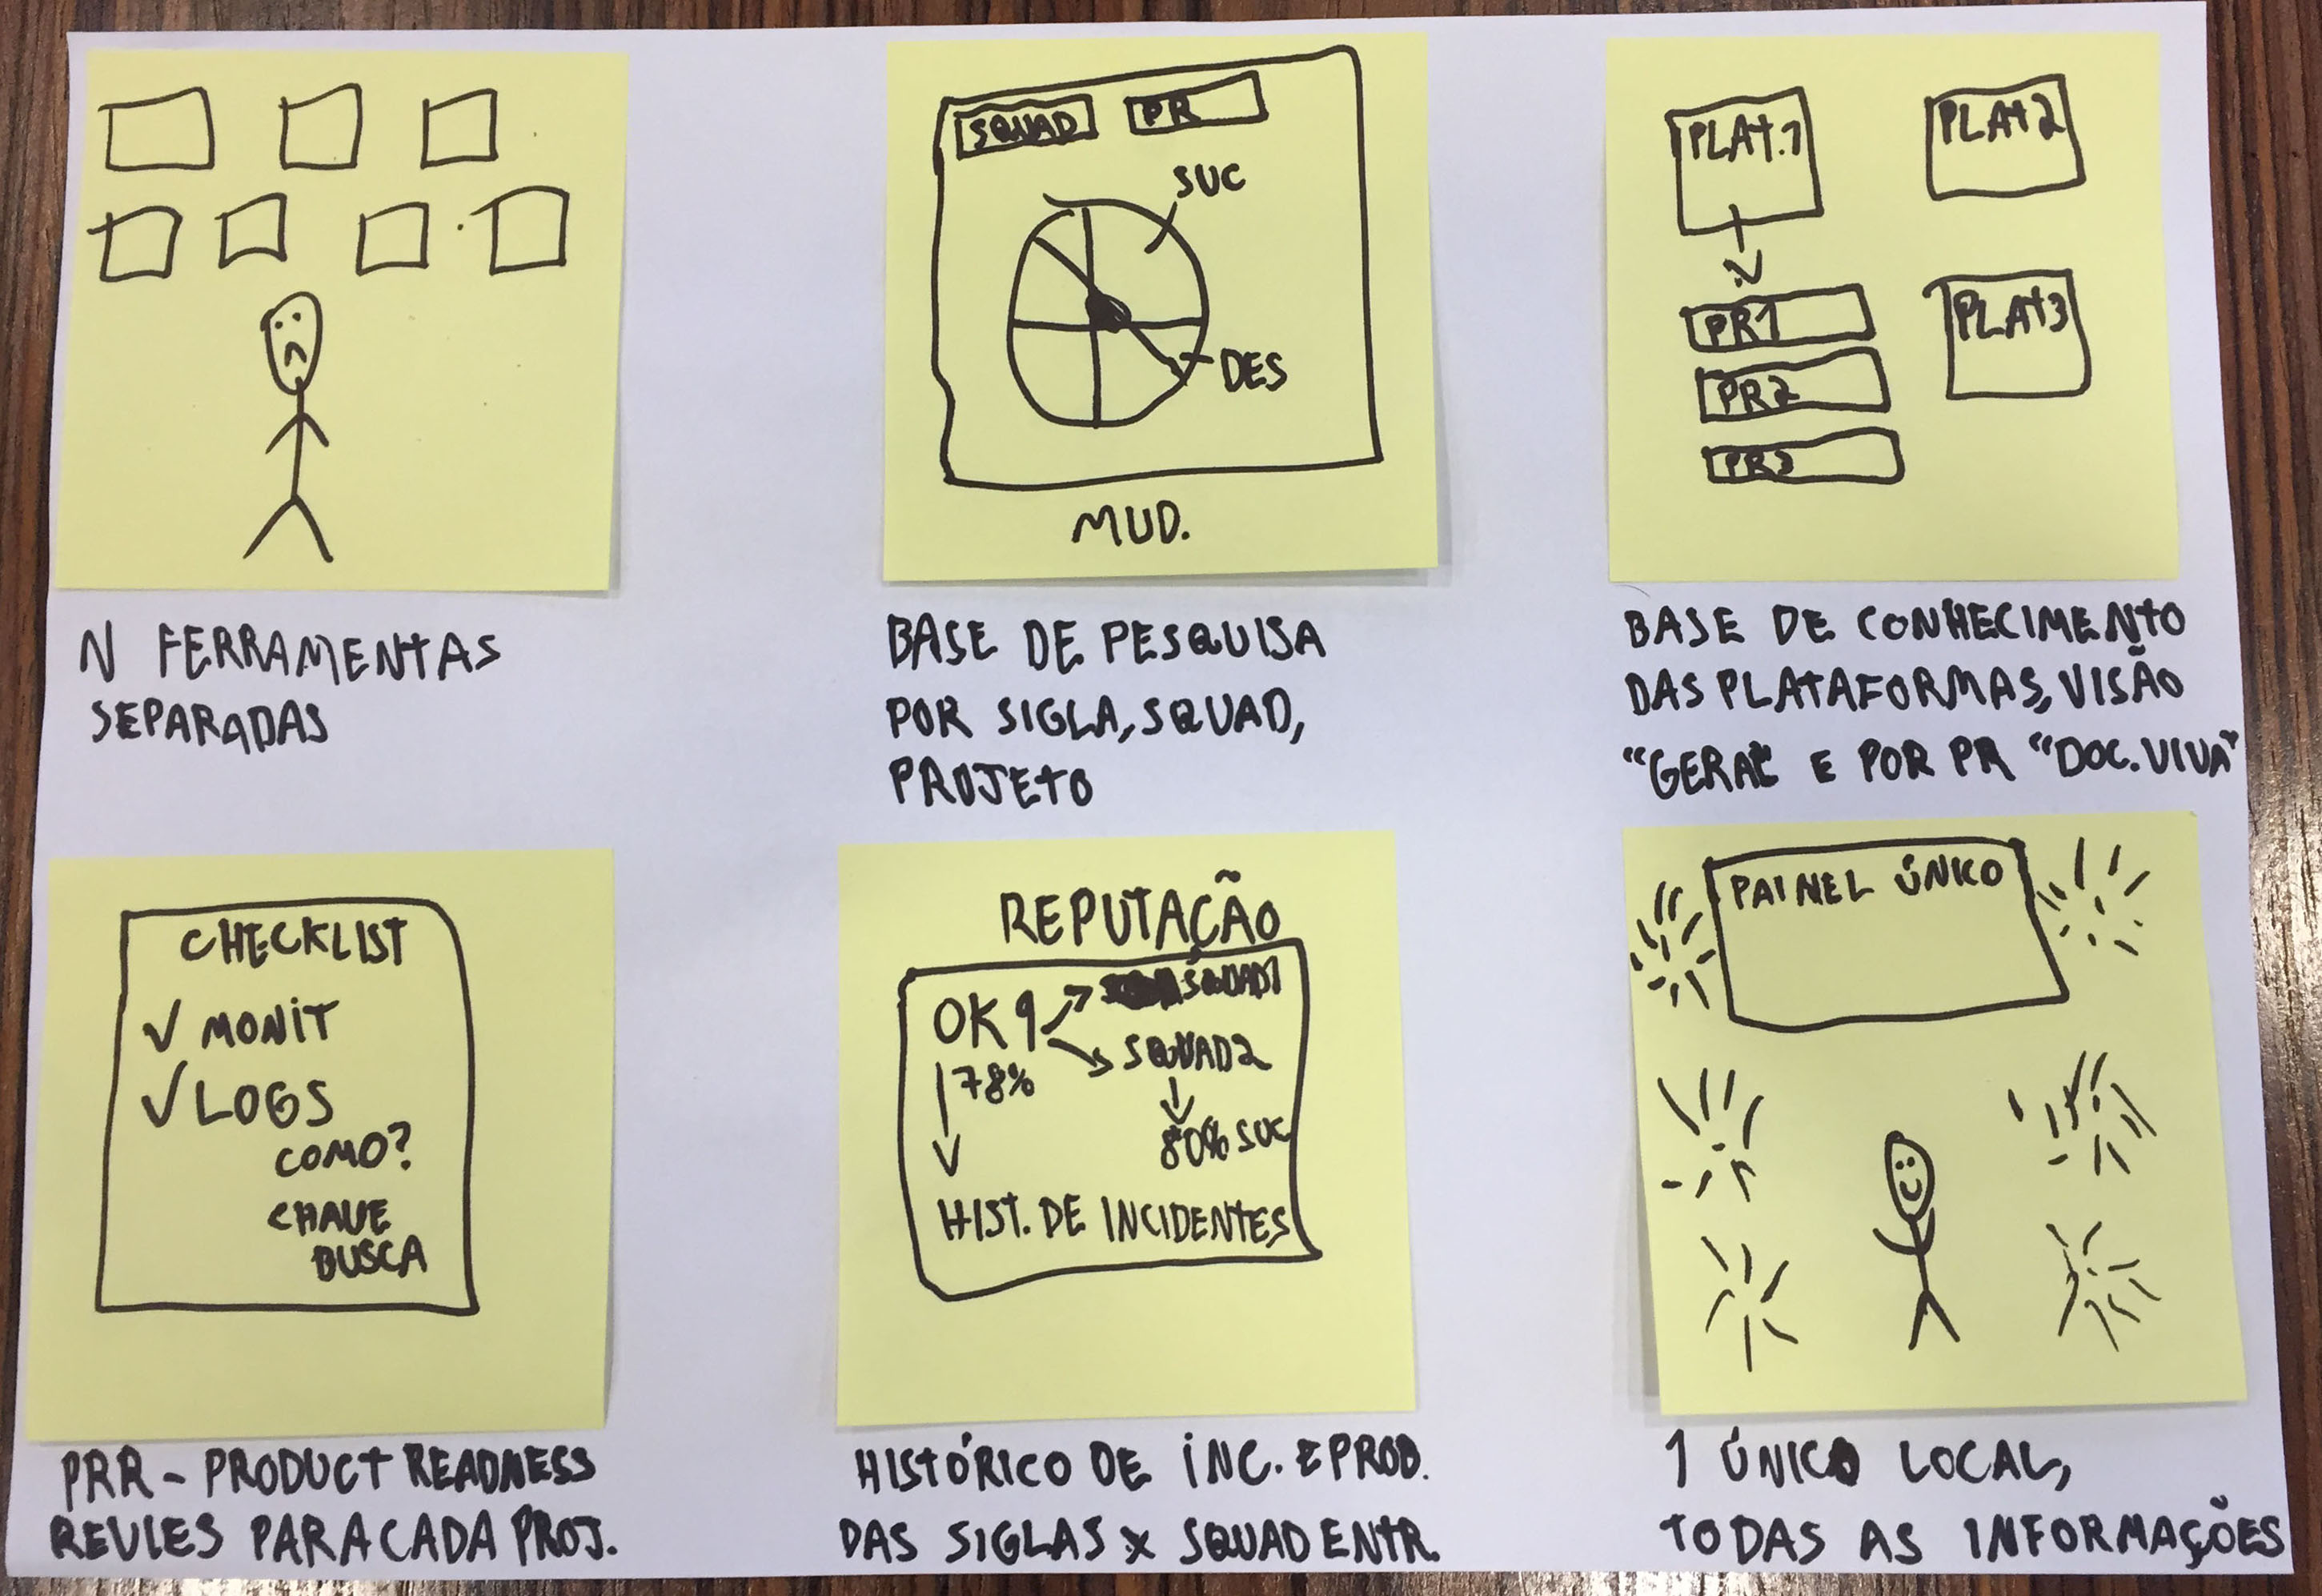 N FERRAMENTAS
SEPARADAS
SQUAD PR
SUC
DES
MUD.
BASE DE PESQUISA
POR SIGLA, SQUAD,
PROJETO
PLAT.1
PLAT2
PR1
PLAT3
PR2
PR3
BASE DE CONHECIMENTO
DAS PLATAFORMAS, VISÃO
"GERAL" E POR PR "DOC. VIVA"
CHECKLIST
√ MONIT
√ LOGS
COMO?
CHAVE
BUSCA
PRR - PRODUCT READNESS
REVIES PARA CADA PROJ.
REPUTAÇÃO
SQUAD1
OK9
SQUAD2
78%
80% SUC
HIST. DE INCIDENTES
HISTÓRICO DE INC. E PROD.
DAS SIGLAS X SQUAD ENTR.
PAINEL ÚNICO
1 ÚNICO LOCAL,
TODAS AS INFORMAÇÕES